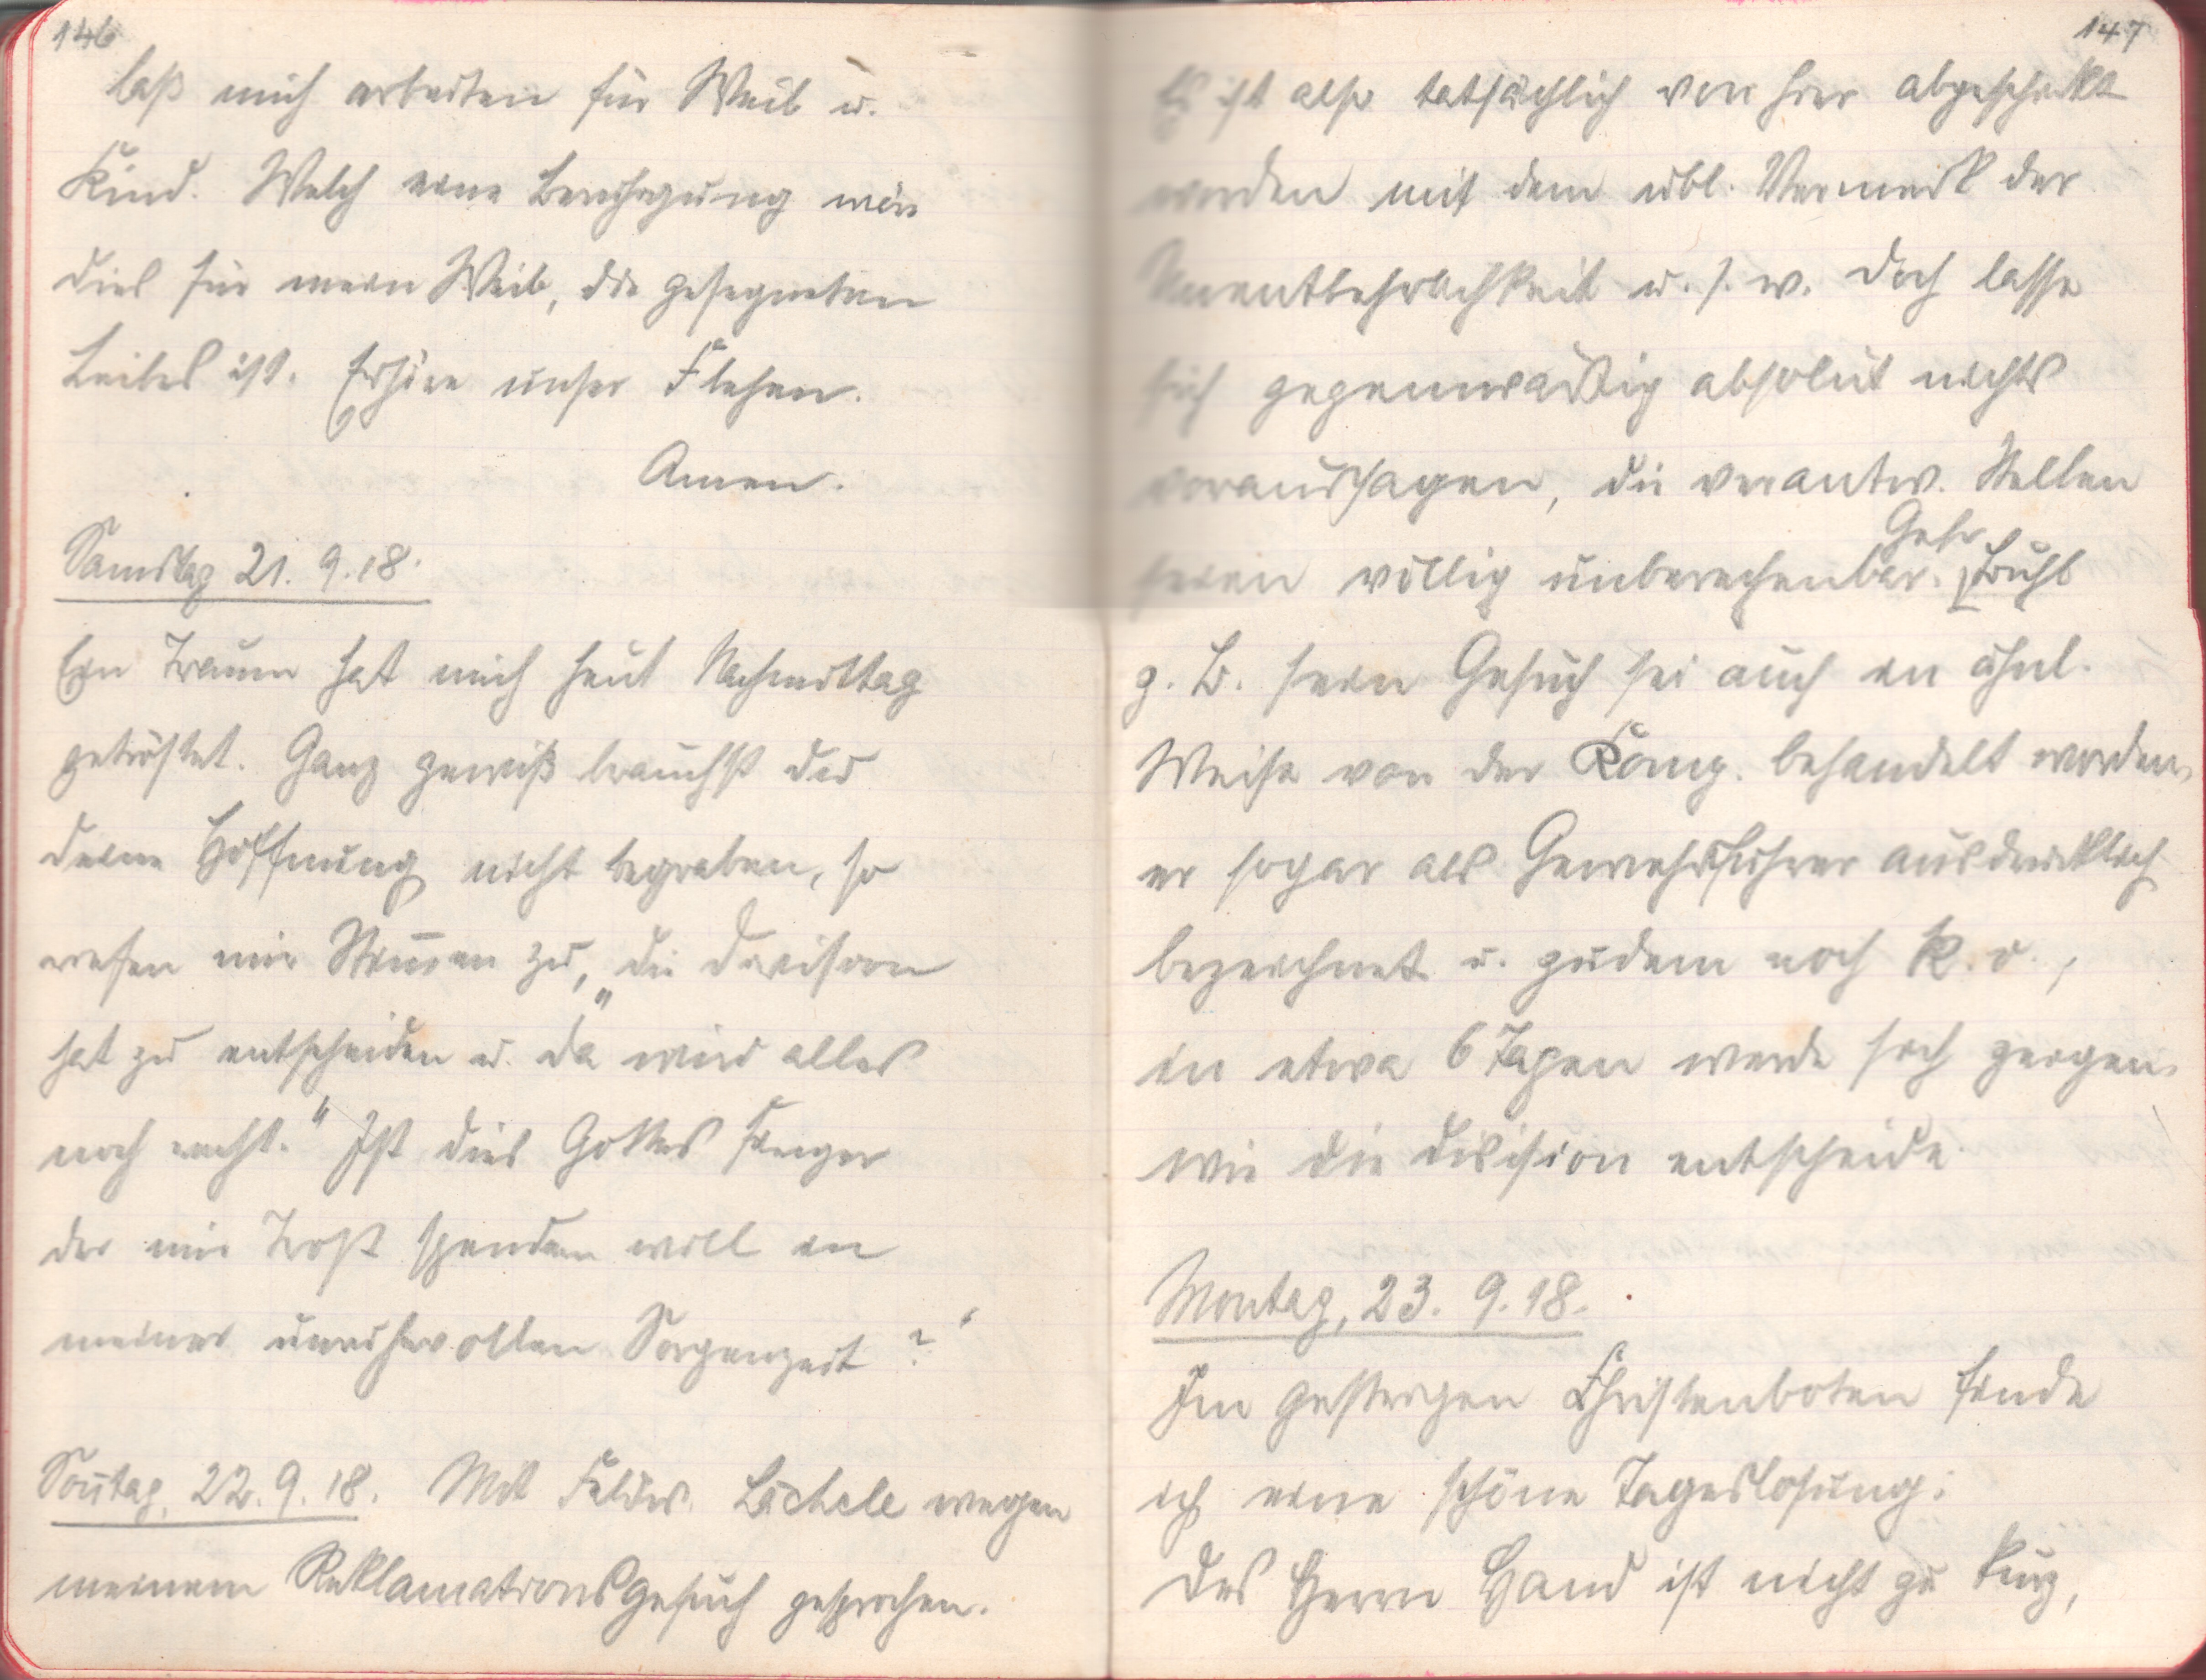 146
laß mich arbeiten für Weib u.
Kind. Welch eine Beruhigung wär
dies für mein Weib, die gesegneten
Leibes ist. Erhöre unser Flehen.
Amen.
Samstag 21. 9. 18.
Ein Traum hat mich heut Nachmittag
getröstet. Ganz gewiß brauchst du
deine Hoffnung nicht begraben, so
riefen mir Stimmen zu, „die Division
hat zu entscheiden u. da wird alles
noch recht." Ist dies Gottes Finger
der mir Trost spenden will in
meiner unruhevollen Sorgenzeit?
Sontag, 22. 9. 18. Mit Feldw. Bächele wegen
meinem Reklamationsgesuch gesprochen.
147
Es ist also tatsächlich von hier abgeschickt
worden mit dem übl. Vermerk der
Unentbehrlichkeit u. s. w. Doch lasse
sich gegenwärtig absolut nichts
voraussagen, die verantw. Stellen
seien völlig unberechenbar. Gefr. Buhl
z. B. sein Gesuch sei auch in ähnl.
Weise von der Komp. behandelt worden,
er sogar als Gewehrführer ausdrücklich
bezeichnet u. zudem noch k. v.,
in etwa 6 Tagen werde sich zeigen,
wie die Division entscheide.
Montag, 23. 9. 18.
Im gestrigen Christenboten finde
ich eine schöne Tageslosung:
Des Herrn Hand ist nicht zu kurz,